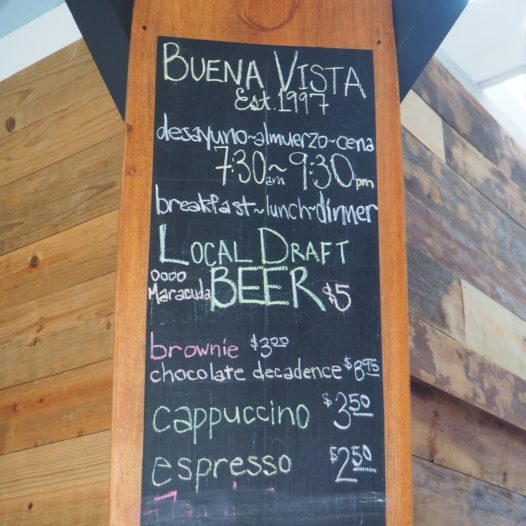 BUENA VISTA
Est. 1997
desayuno~almuerzo~cena
7:30am~9:30pm
breakfast~lunch~dinner
LOCAL DRAFT
oooo
Maracuda BEER $5
brownie $3.00
chocolate decadence $8.95
cappuccino $3.50
espresso $2.50